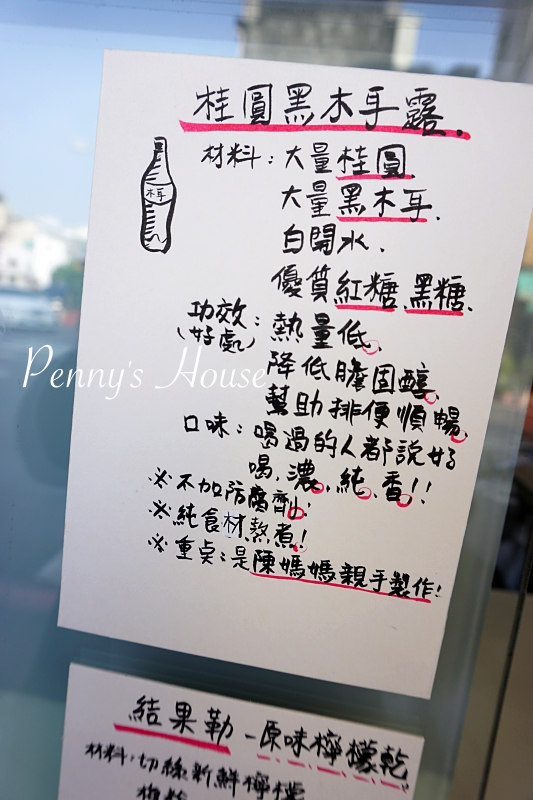 桂圓黑木耳露.
木耳
材料：大量桂圓.
大量黑木耳.
白開水.
優質紅糖.黑糖.
功效：熱量低。
(好處)
降低膽固醇。
幫助排便順暢。
口味：喝過的人都說好
喝,濃。純。香!!
※不加防腐劑!
※純食材熬煮!
※重點:是陳媽媽親手製作!
Penny's House
結果勒-原味檸檬乾
材料:切絲新鮮檸檬
梅粉